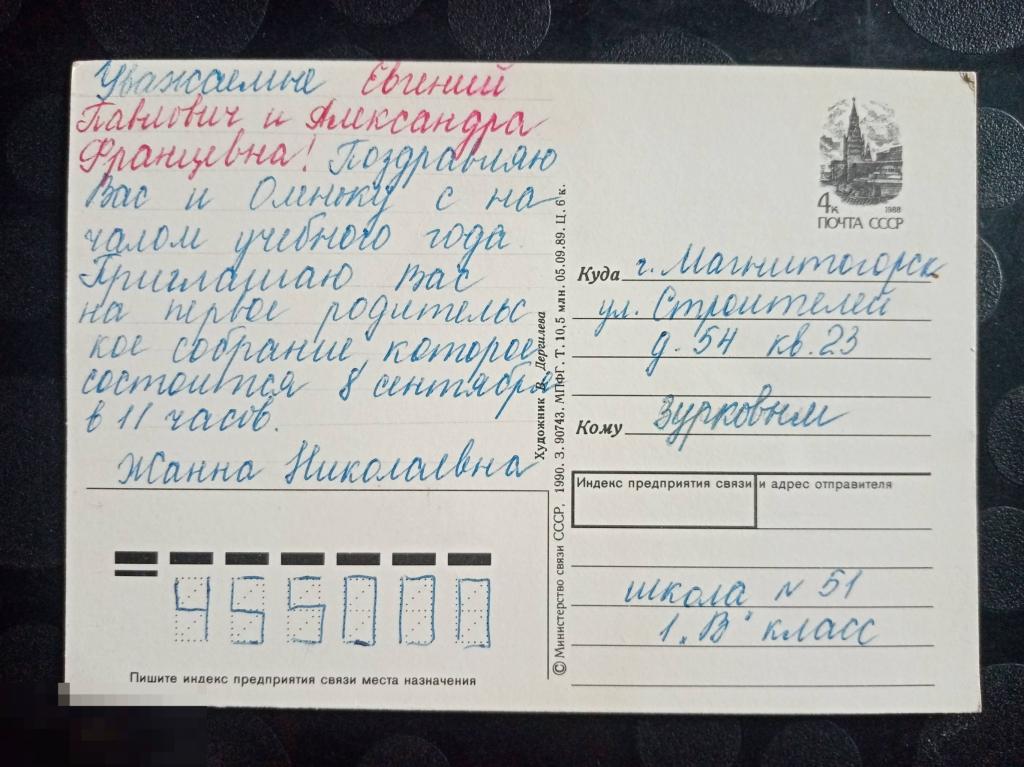 Уважаемые Евгений
Павлович и Александра
Францевна! Поздравляю
Вас и Оленьку с на
чалом учебного года.
Приглашаю Вас
на первое родительс
кое собрание, которое
состоится 8 сентября
в 11 часов.
Жанна Николаевна
455000
Пишите индекс предприятия связи места назначения
Художник В. Дергилева
© Министерство связи СССР, 1990. З. 90743. МПФГ. Т. 10,5 млн. 05.09.89. Ц. 6 к.
4к
1988
ПОЧТА СССР
Куда г. Магнитогорск
ул. Строителей
д. 54 кв. 23
Кому Зурковым
Индекс предприятия связи и адрес отправителя
школа N 51
1 „В" класс